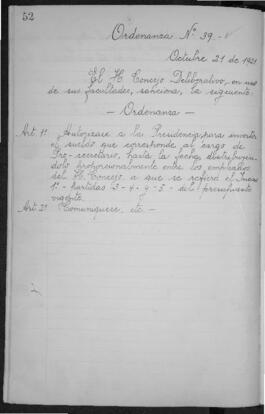 52
Ordenanza Nº 39.-
Octubre 21 de 1921
El H. Concejo Deliberativo, en uso
de sus facultades, sanciona, la siguiente:
- Ordenanza -
Art. 1º Autorizase a la Presidencia para invertir
el sueldo que corresponde al cargo de
Pro-secretario, hasta la fecha, distribuyen-
dolo proporcionalmente entre los empleados
del H. Concejo a que se refiere el Inciso
1º - partidas - 3 - 4 - 5 - del presupuesto
vigente.
Art. 2º Comuniquese, etc. -